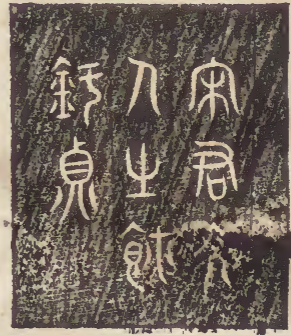 宋君夫
人之餗
釪貞